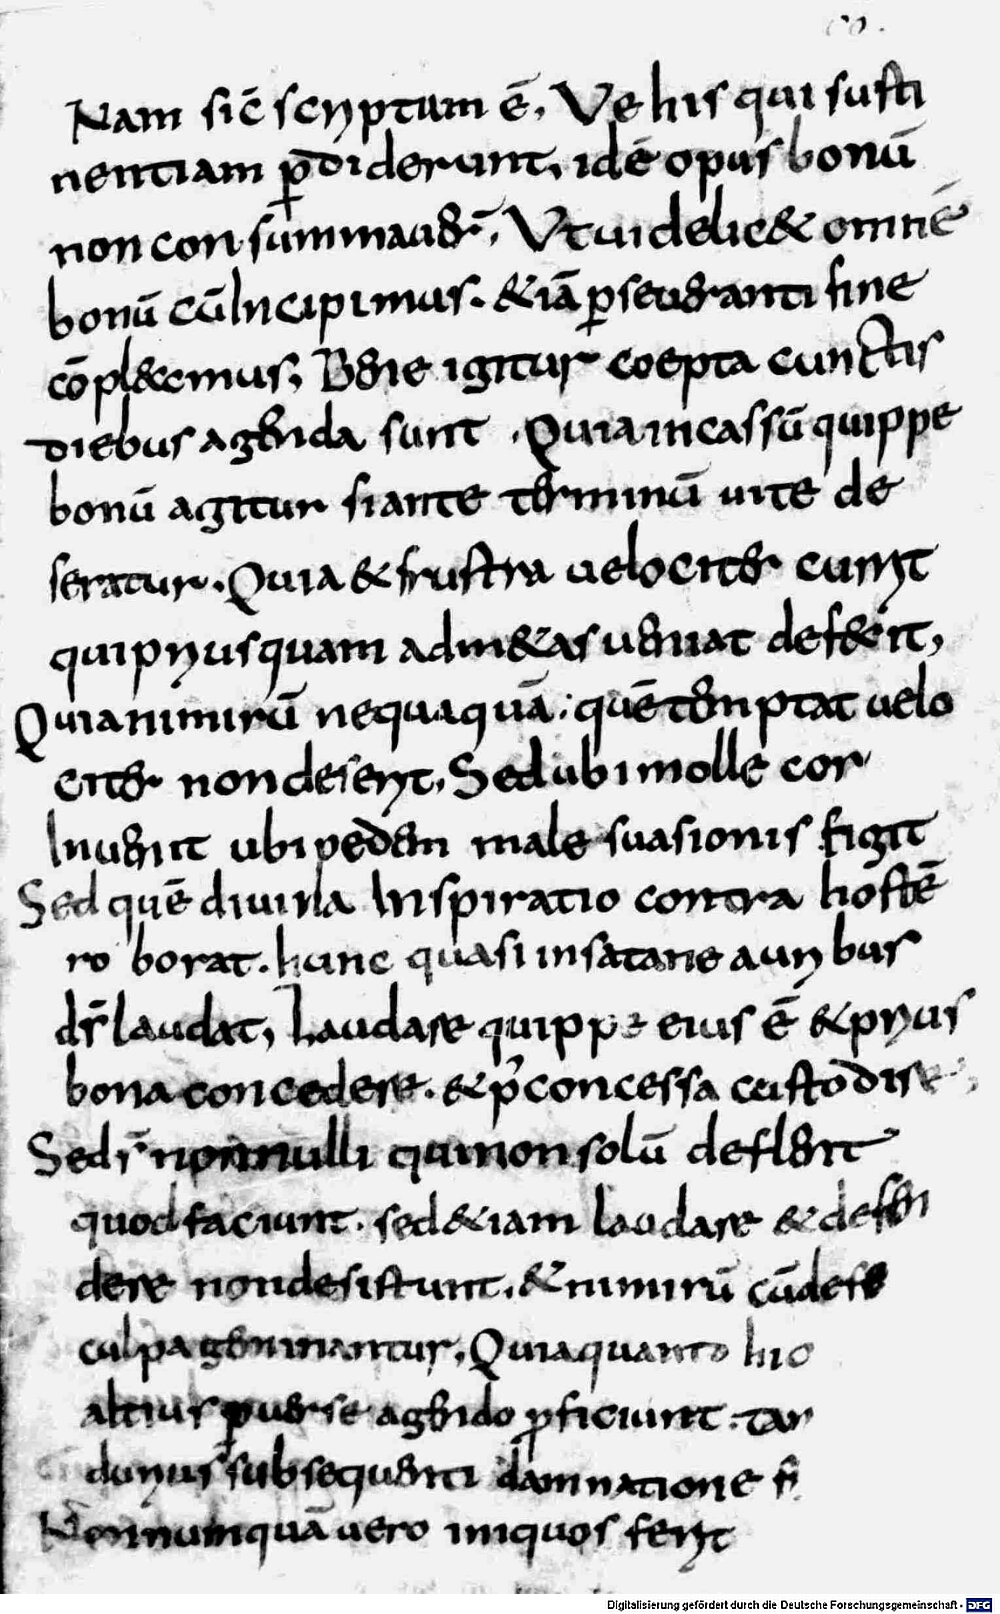 Nam sic̄ scriptum ē. Ve his qui susti
nentiam p̱diderunt, idē opus bonū
non consummaueṝ. Ut uidelic& omnē
bonū cū Incipimus. &iā p̱seueranti fine
cōpl&emus, Bene igitur coepta cunctis
diebus agenda sunt. Quia incassū quippe
bonū agitur si ante terminū uite de
seratur. Quia & frustra uelociter currit
qui prius quam ad m&as ueniat defecerit,
Quia nimirū nequaquā: quē temptat uelo
citer non deserit. Sed ubi molle cor
Inuenerit ubi pedem male suasionis figit
Sed quē diuina Inspiratio contra hostē
roborat. hunc quasi in satane auribus
ds̄ laudat, Laudare quippe eius ē & prius
bona concedere. & p̄ concessa custodire.
Sed s̄ nonnulli qui non solū deflent
quod faciunt. sed &iam laudare & defen
dere non desistunt. & nimirū cū defe
culpa geminantur, Quia quanto hic
altius p̱uerse agendo ꝓficiunt. tan
durius subsequenti damnatione
Nonnumquā uero iniquos ferit